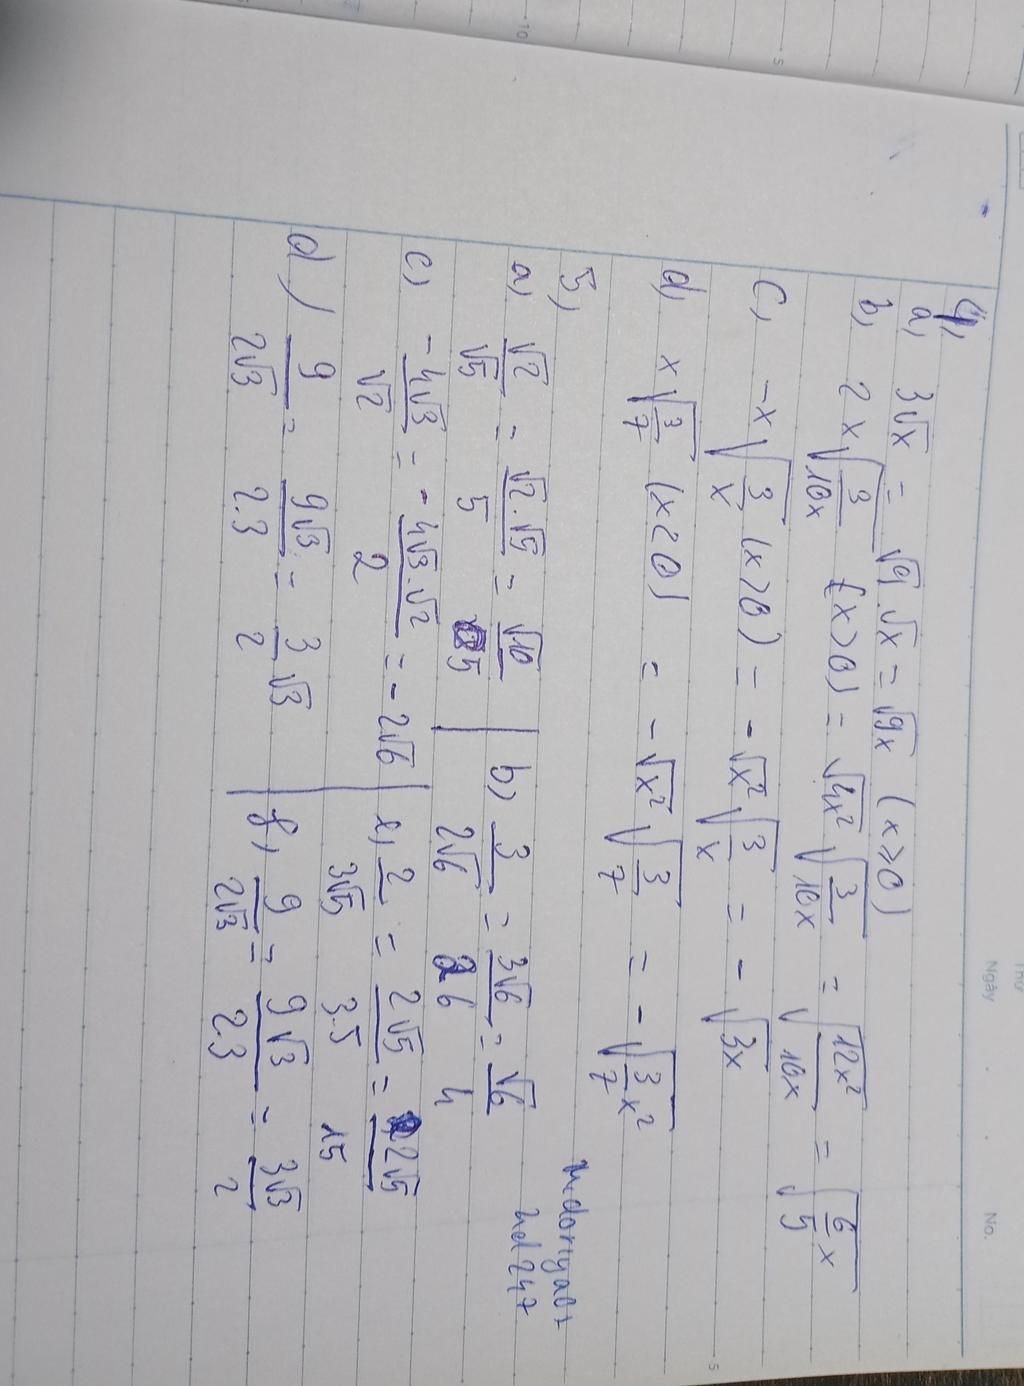 Thứ
Ngày . . No.
4,
a, 3√x = √9.√x = √9x (x≥0)
b, 2x√(3/10x) (x>0) = √4x² √(3/10x) = √(12x²/10x) = √(6/5 x)
c, -x√(3/x) (x>0) = -√x² √(3/x) = -√3x
d, x√(3/7) (x<0) = -√x² √(3/7) = -√(3/7 x²)
5,
a, √2/√5 = √2.√5/5 = √10/5 | b, 3/2√6 = 3√6/26 = √6/4
c, -4√3/√2 = -4√3.√2/2 = -2√6 | e, 2/3√5 = 2√5/3.5 = 2√5/15
d) 9/2√3 = 9√3/2.3 = 3/2 √3 | f, 9/2√3 = 9√3/2.3 = 3√3/2
hd247
5
5
10